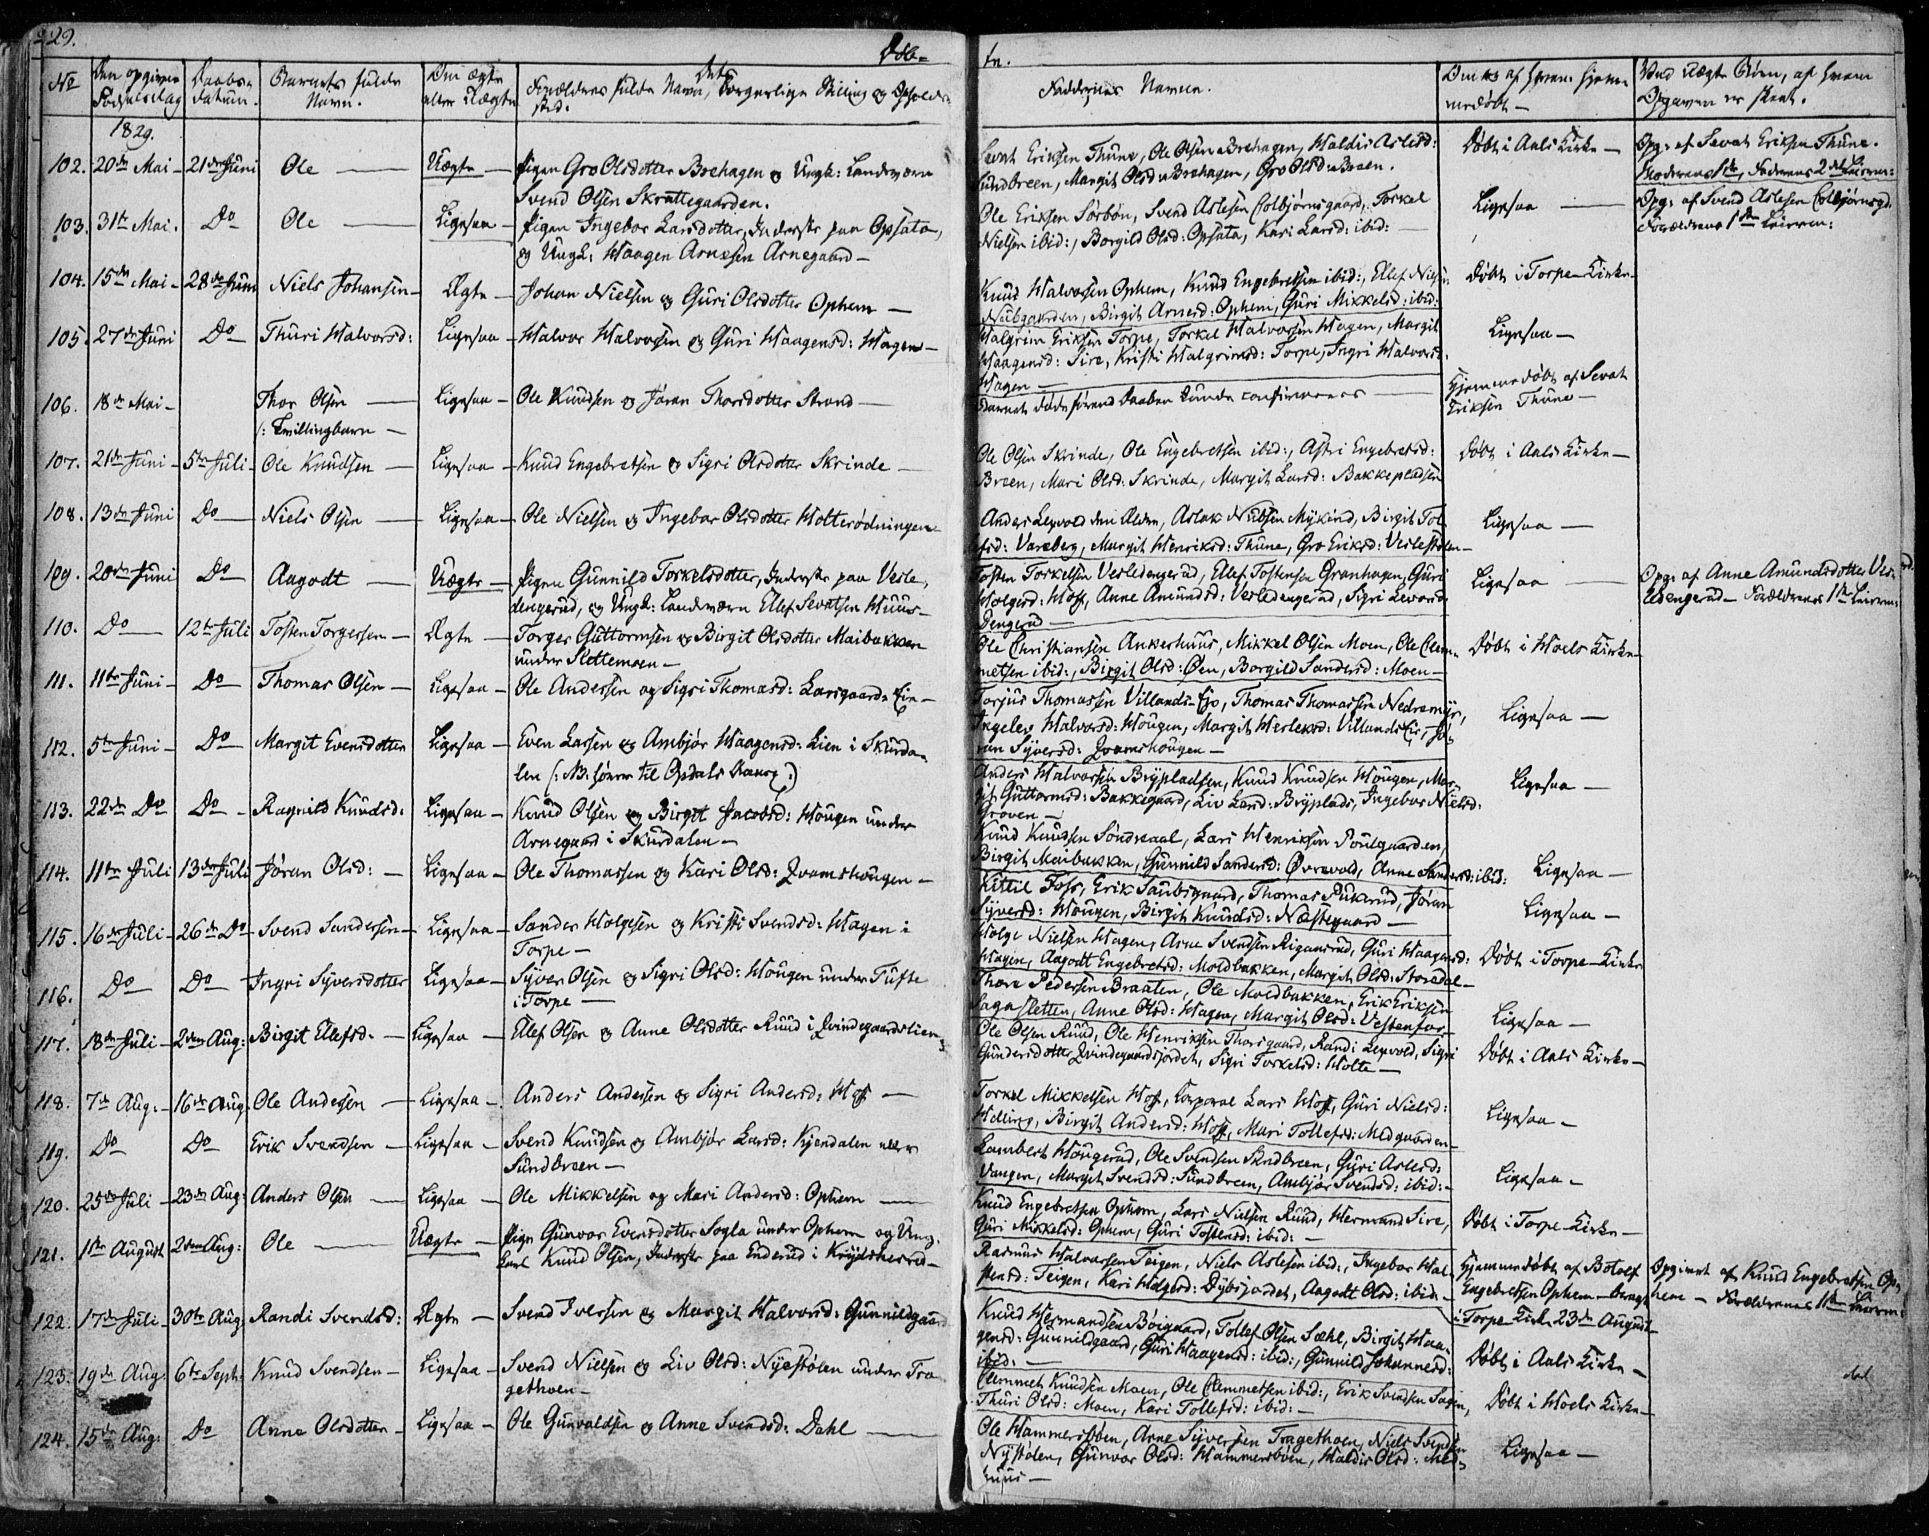 229.
Døb-
te.
No
Den opgivne Fødselsdag
Daabs-datum.
Barnets fulde Navn.
Om ægte eller Uægte
Forældres fulde Navn, Borgerlige Stilling og Opholds-sted.
Faddernes Navne.
Om og af hvem hjemmedøbt —
Ved Uægte Børn, af hvem Opgaven er skeet.
1829.
102. 20de Mai — 21de Juni Ole — Uægte — Pigen Gro Olsdotter Brehagen og Ungk: Landværn
Svend Olsen Skrattegaarden.
Sevat Eriksen Thune, Ole Olsen Brehagen, Haldis Aslesd:
Sundbreen, Margit Olsd Brehagen, Gro Olsd Breen.
Døbt i Aals Kirke —
Opg: af Sevat Eriksen Thune.
Moderens 1ste, Faderens 2det Leierm:
103. 31te Mai. Do Ole — Ligesaa — Pigen Ingebor Larsdotter, Inderste paa Opsata,
og Ungk: Haagen Arnesen Arnegaard —
Ole Eriksen Sørbøn, Svend Aslesen Colbjørnsgaard, Torkel
Nielsen ibid:, Borgild Olsd: Opsata, Kari Larsd: ibid: —
Ligesaa —
Opg: af Svend Aslesen Colbjørnsgd.
Forældrenes 1ste Leierm:
104. 15de Mai — 28de Juni Niels Johansen — Ægte — Johan Nielsen og Guri Olsdotter Ophem —
Knud Halvorsen Ophem, Knud Engebretsen ibid:, Ellef Nielsen
Nubgaarden, Birgit Arnesd: Ophem, Guri Mikkelsd: ibid:
Døbt i Torpe Kirke —
105. 27de Juni Do Thuri Halvorsd: Ligesaa — Halvor Halvorsen og Guri Haagensd: Hagen —
Halgrim Eriksen Torpe, Torkel Halvorsen Hagen, Margit
Haagensd: Sire, Kristi Halgrimsd: Torpe, Ingri Halvorsd:
Hagen —
Ligesaa —
106. 18de Mai — Thor Olsen — Ligesaa — Ole Knudsen og Jøran Thorsdotter Strand —
/: Tvillingbarn —
Barnet døde førend Daaben kunde confirmeres —
Hjemmedøbt af Sevat
Eriksen Thune —
107. 21de Juni — 5te Juli — Ole Knudsen — Ligesaa — Knud Engebretsen og Sigri Olsdotter Skrinde —
Ole Olsen Skrinde, Ole Engebretsen ibid:, Astri Engebretsd:
Breen, Mari Olsd: Skrinde, Margit Larsd: Bakkepladsen
Døbt i Aals Kirke —
108. 13de Juni Do — Niels Olsen — Ligesaa — Ole Nielsen og Ingebor Olsdotter Holterødningen —
Anders Leqvold den Ældre, Aslak Nubsen Mykind, Birgit Tol-
lefsd: Vareberg, Margit Henriksd: Thune, Gro Eriksd: Veslestølen —
Ligesaa —
109. 20de Juni Do Aagodt — Uægte — Pigen Gunnild Torkelsdotter, Inderste paa Vesle-
dengerud, og Ungk: Landværn Ellef Sevatsen Huus —
Tosten Torkelsen Vesledengerud, Ellef Tostensen Granhagen, Guri
Holgersd: Hoff, Anne Amundsd: Vesledengerud, Sigri
Dengerud —
Ligesaa —
Opg: af Anne Amundsdotter Ves-
ledengerud — Forældrenes 1ste Leierm:
110. Do — 12te Juli Tosten Torgersen — Ægte — Torger Guttormsen og Birgit Olsdotter Maibakken
under Slettemoen —
Ole Christiansen Ankerhuus, Mikkel Olsen Moen, Ole Clem-
metsen ibid:, Birgit Olsd: Øen, Borgild Sandersd: Moen —
Døbt i Hoels Kirke —
111. 11te Juni — Do — Thomas Olsen — Ligesaa — Ole Andersen og Sigri Thomasd: Larsgaards Eie —
Torjus Thomassen Villands-Eje, Thomas Thomassen Nedremyr,
Ingelev Halvorsd: Hougen, Margit Herleksd: Villands Eie, Jø-
ran Syversd: Qvamshougen —
Ligesaa —
112. 5te Juni — Do — Margit Evensdotter Ligesaa — Even Larsen og Ambjør Haagensd: Lien i Skurda-
len (: NB: hører til Opdals Annex :)
Anders Halvorsen Brypladsen, Knud Knudsen Hougen, Mar-
git Guttormsd: Bakkegaard, Liv Larsd: Bryplads, Ingebor Nielsd:
Groven —
Ligesaa —
113. 22de Do Do — Ragnild Knudsd: Ligesaa — Knud Olsen og Birgit Jacobsd: Hougen under
Arnegaard i Skurdalen —
Knud Knudsen Søndreaal, Lars Henriksen Poulgaarden,
Birgit Maibakken, Gunnild Sandersd: Øvrevold, Anne Sandersd: ibid:
Ligesaa —
114. 11te Juli 13de Juli Jøran Olsd: — Ligesaa — Ole Thomassen og Kari Olsd: Qvamshougen —
Kittil Foss, Erik Smidsgaard, Thomas Pukerud, Jøran
Syversd: Hougen, Birgit Knudsd: Nestegaard —
Ligesaa —
115. 16de Juli — 26de Do — Svend Sandersen — Ligesaa — Sander Holgesen og Kristi Svendsd: Hagen i
Torpe —
Holge Nielsen Hagen, Arne Svendsen Rigansrud, Guri Haagensd:
Hagen, Aagodt Engebretsd: Moldbakken, Margit Olsd: Noredal —
Døbt i Torpe Kirke
116. Do — Do — Ingri Syversdotter Ligesaa — Syver Olsen og Sigri Olsd: Hougen under Tufte
i Torpe —
Thore Pedersen Braaten, Ole Moldbakken, Erik Eriksen
Sagasletten, Anne Olsd: Hagen, Margit Olsd: Vestenfor
Ligesaa —
117. 18de Juli — 2den Aug: Birgit Ellefsd. — Ligesaa — Ellef Olsen og Anne Olsdotter Ruud i Qvindegaardslien
Ole Olsen Ruud, Ole Henriksen Thorsgaard, Randi Leqvold, Sigri
Gundersdotter Qvindegaardsjordet, Sigri Torkelsd: Holte —
Døbt i Aals Kirke —
118. 7de Aug: — 16de Aug: Ole Andersen — Ligesaa — Anders Andersen og Sigri Andersd: Hoff —
Torkel Mikkelsen Hoff, Corporal Lars Hoff, Guri Nielsd:
Helling, Birgit Andersd: Hoff, Mari Tollefsd: Medgaarden —
Ligesaa —
119. Do Do Erik Svendsen — Ligesaa — Svend Knudsen og Ambjør Larsd: Kjendalen nær
Sundbreen —
Lambert Hougerud, Ole Svendsen Sundbreen, Guri Aslesd:
Vangen, Margit Svendsd: Sundbreen, Ambjør Svendsd: ibid: —
Ligesaa —
120. 25de Juli — 23de Aug: Anders Olsen — Ligesaa — Ole Mikkelsen og Mari Andersd: Ophem —
Knud Engebretsen Ophem, Lars Nielsen Ruud, Hermand Sire,
Guri Mikkelsd: Ophem, Guri Tostensd: ibid: —
Døbt i Torpe Kirke —
121. 1ste August 2den Aug: Ole — Uægte — Pige Gunvor Evensdotter Sogla under Ophem og Ung-
karl Knud Olsen, Inderste paa Enderud i Krydsherred —
Rasmus Halvorsen Teigen, Niels Aslesen ibid:, Ingebor Hal-
stensd: Teigen, Kari Helgesd: Dybsjordet, Aagodt Olsd: ibid: —
Hjemmedøbt af Botolf
Engebretsen Ophem — bragt
i Torpe Kirke 23de August —
Opgivet af Knud Engebretsen Op-
hem — Forældrenes 1ste Leierm:
122. 17de Juli — 30te Aug: Randi Svendsd: Ægte — Svend Iversen og Margit Halvorsd: Gunnildgaard
Knud Hermandsen Bøigaard, Tollef Olsen Sæhl, Birgit Haa-
gensd: Gunnildgaard, Guri Haagensd: ibid:, Gunnild Johannesd:
ibid. —
Døbt i Aals Kirke —
123. 19de Aug: 6te Septr: Knud Svendsen — Ligesaa — Svend Nielsen og Liv Olsd: Nyestølen under Tra-
gethoen —
Clemmet Knudsen Moen, Ole Clemmetsen ibid:, Erik Svendsen Sagen,
Thuri Olsd: Moen, Kari Tollefsd: ibid: —
Døbt i Hoels Kirke —
124. 15de Aug: Do Anne Olsdotter — Ligesaa — Ole Gunvaldsen og Anne Svendsd: Dahl —
Ole Hammersbøen, Arne Syversen Tragethoen, Niels Svendsen
Nystølen, Gunvor Olsd: Hammersbøen, Haldis Olsd: Med-
huus —
Ligesaa —